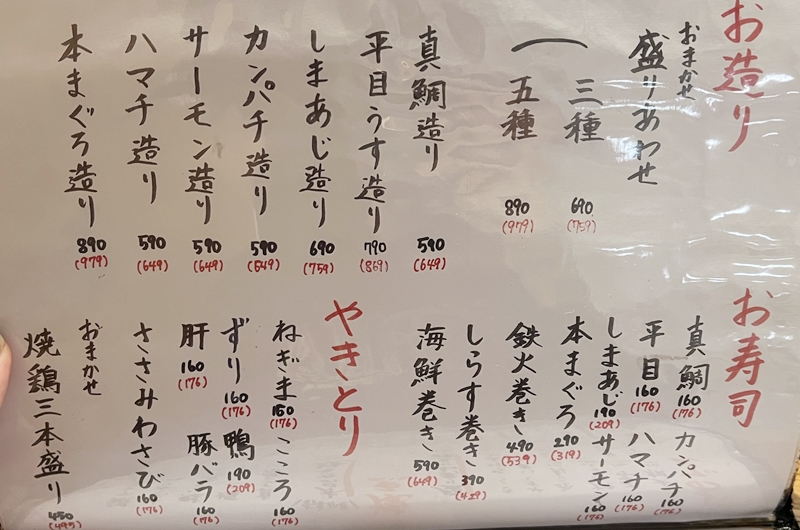 お造り
おまかせ
盛りあわせ
三種
690
(759)
五種
890
(979)
真鯛造り
590
(649)
平目うす造り
790
(869)
しまあじ造り
690
(759)
カンパチ造り
590
(649)
サーモン造り
590
(649)
ハマチ造り
590
(649)
本まぐろ造り
890
(979)
お寿司
真鯛
160
(176)
カンパチ
160
(176)
平目
160
(176)
ハマチ
160
(176)
しまあじ
190
(209)
サーモン
160
(176)
本まぐろ
290
(319)
鉄火巻き
490
(539)
しらす巻き
390
(429)
海鮮巻き
590
(649)
やきとり
ねぎま
160
(176)
こころ
160
(176)
ずり
160
(176)
鴨
190
(209)
肝
160
(176)
豚バラ
160
(176)
ささみわさび
160
(176)
おまかせ
焼鶏三本盛り
450
(495)